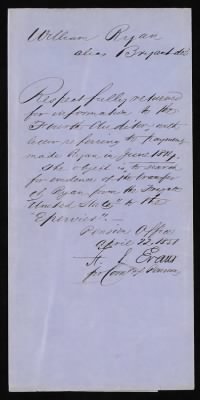 William Ryan
alias Bryant
Respectfully returned
for information to the
Fourth Auditor with
referring to payment
made Ryan in June
The object is to search
for evidence of the transfer
of Ryan from the Frigate
United States to the
"Epervier". —
Pension Office
April 22. 1851
H. L Evans
for Com of Pensions